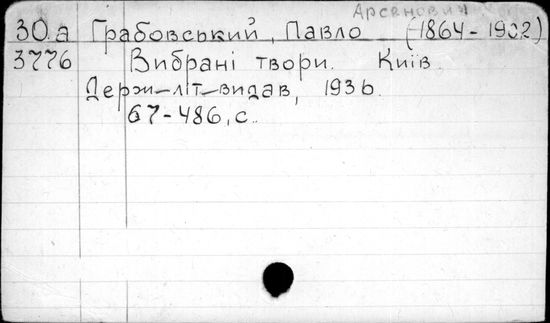 Арсенович
30.а Грабовський, Павло (1864-1902)
3776 Вибрані твори. Київ.
Держ-літ-видав, 1936.
67-486, с.